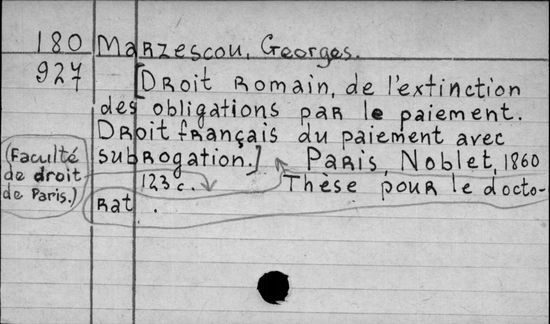 180 Marzescou, Georges.
927 [Droit romain, de l'extinction
des obligations par le paiement.
Droit français du paiement avec
subrogation.] Paris, Noblet, 1860
(Faculté
de droit
de Paris.)
123 c. Thèse pour le docto-
rat.